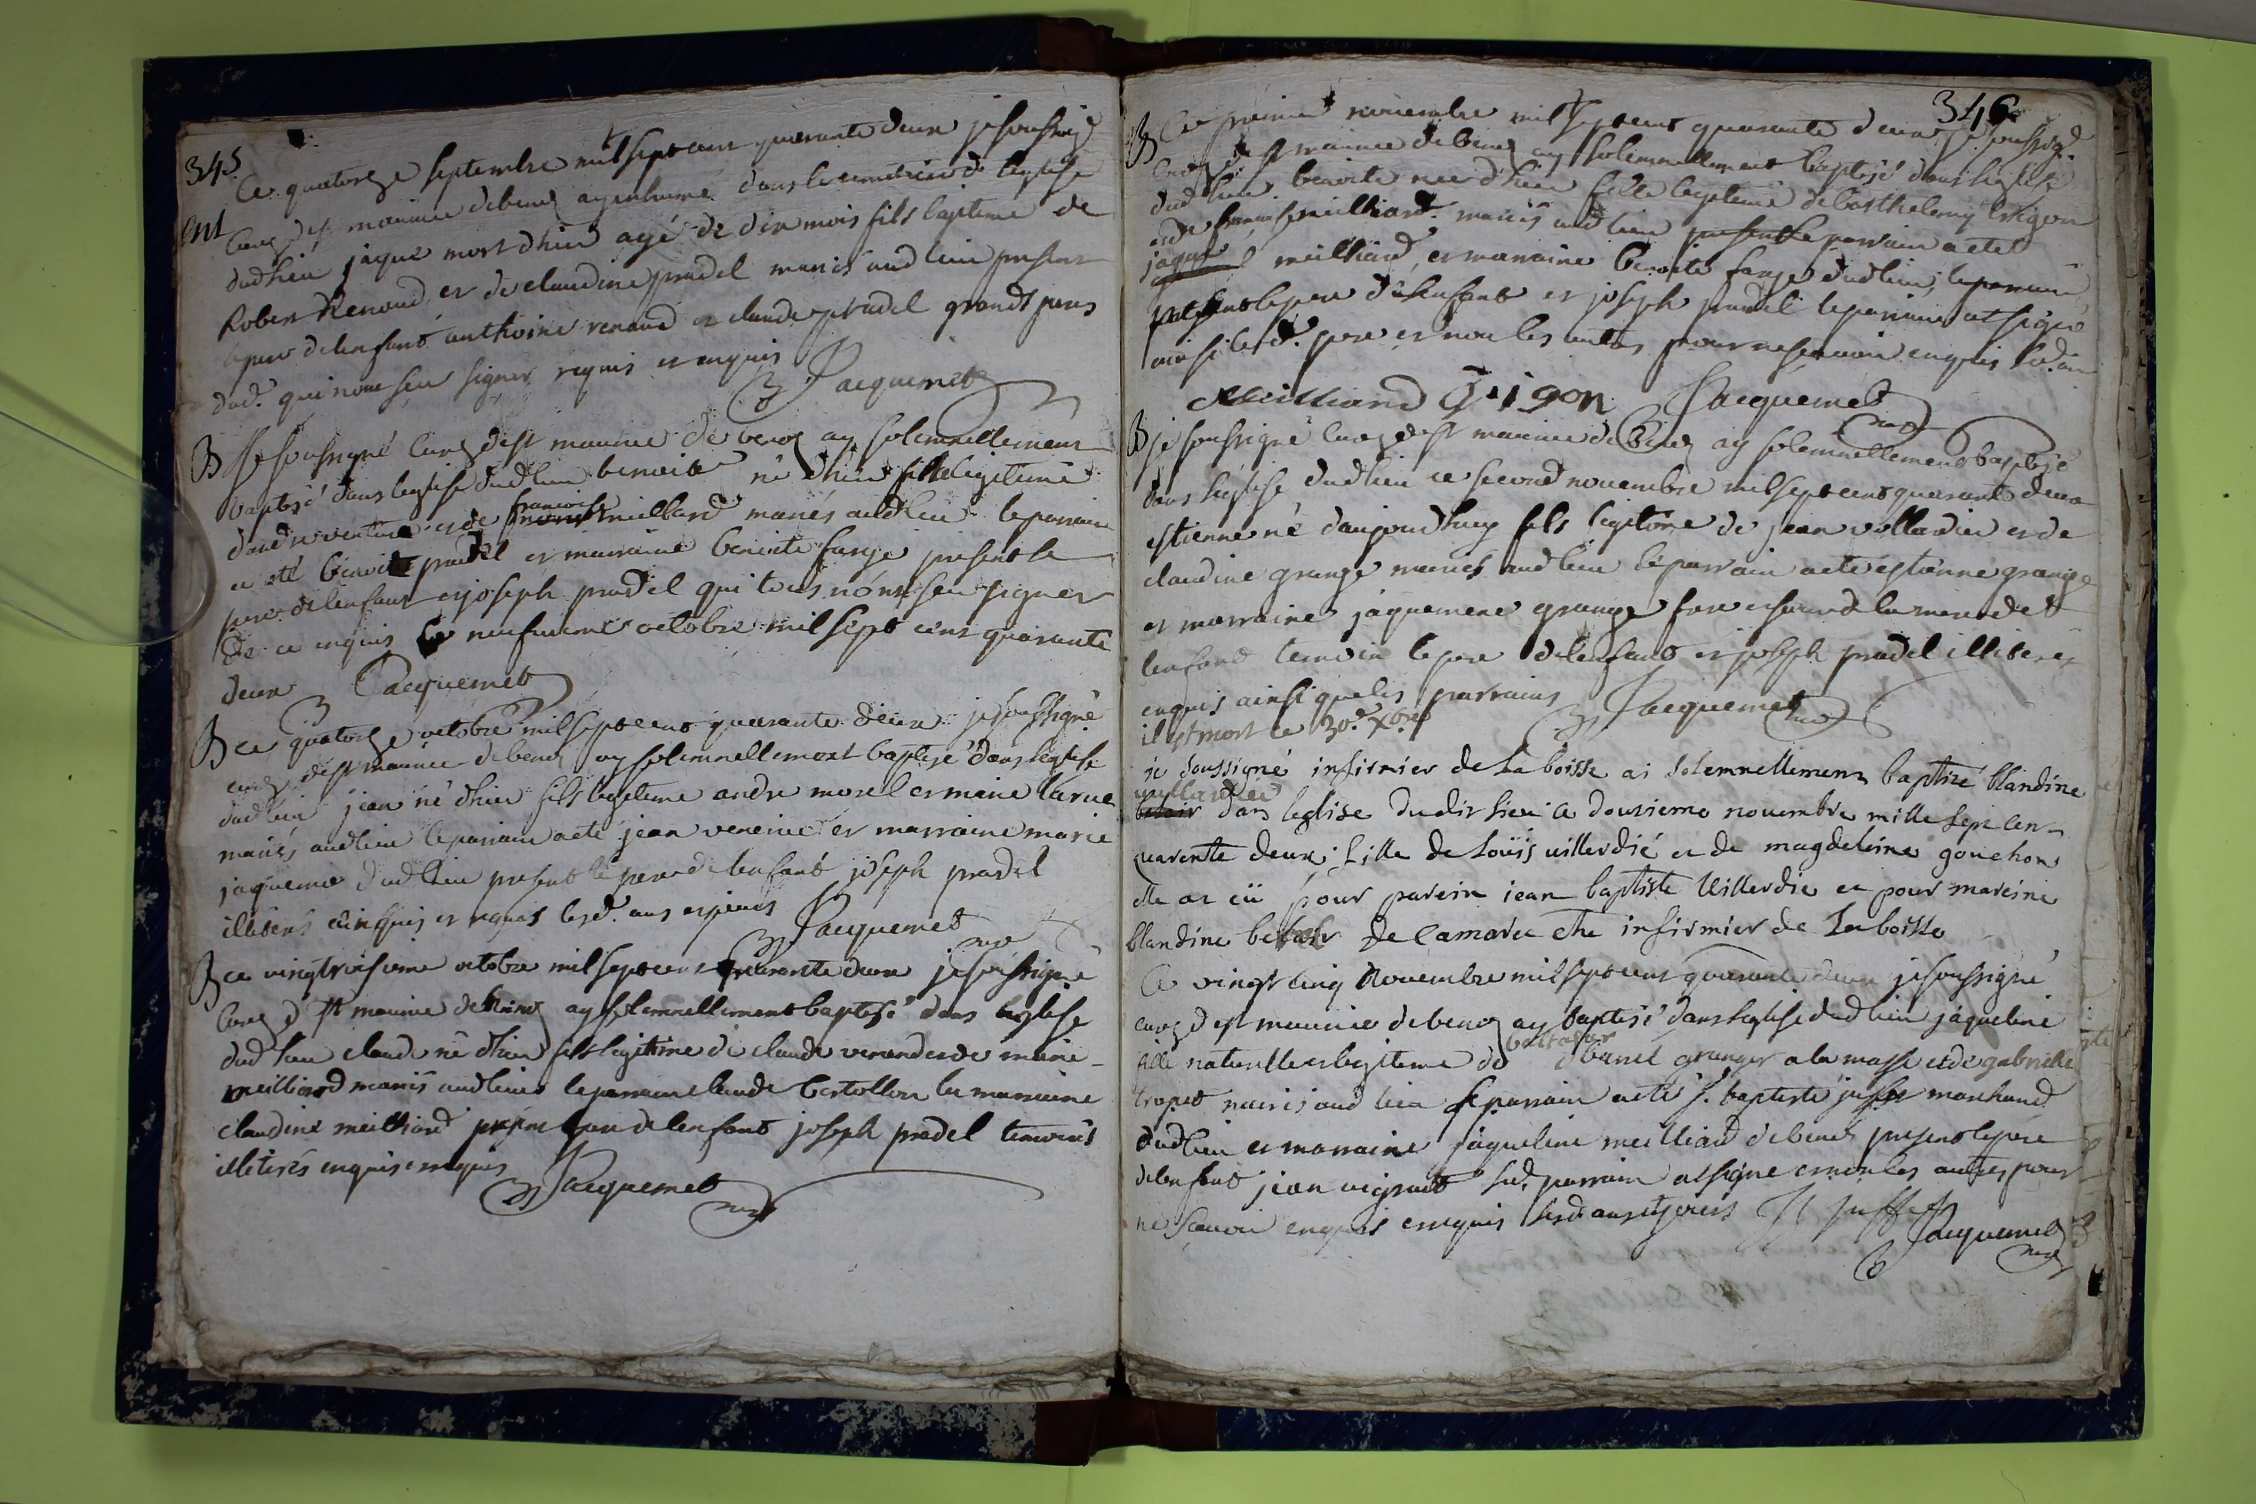 345
Ce quatorze septembre mil sept cent quarante deux je soussigné
ent
curé de st maurice de benoz ay enhumé dans le cimetiere de leglise
dud lieu jaque mort dhier agé de dix mois fils legitime de
Robert Renaud et de claudine pradel mariés aud lieu present
le pere de lenfant anthoine renaud et claude pradel grands peres
dud. qui nont seu signer requis et enquis Jacquemet
B Je soussigné curé de st maurice de benoz ay solemnellement
baptisé dans leglise dud lieu benoite né dhier fille legitime
dandre venture et de francoise meillard mariés aud lieu le parrain
a eté benoite pradel et marraine benoite farge present le
pere de lenfant et joseph pradel qui tous nont seu signer
de ce enquis le neufvieme octobre mil sept cent quarante
deux Jacquemet
B ce quatorze octobre mil sept cent quarante deux je soussigné
curé de st maurice de benoz ay solemnellement baptisé dans leglise
dud lieu jean né dhier fils legitime andre morel et marie larue
mariés aud lieu le parrain a eté jean et marraine marie
jaqueme dud lieu present le pere de lenfant joseph pradel
illiterés enquis et requis lesd. ans et jours Jacquemet
B ce vingt troisieme octobre mil sept cent quarante deux je soussigné
curé de st maurice de benoz ay solemnellement baptisé dans leglise
dud lieu claude né dhier fils legitime de claude et de marie
meilliard mariés aud lieu le parrain claude bertollon la marraine
claudine meilliard present le pere de lenfant joseph pradel temoins
illiterés enquis requis Jacquemet
346
B Ce premier novembre mil sept cent quarante deux je soussigné
curé de st maurice de benoz ay solemnellement baptisé dans leglise
dud lieu benoite née dhier fille legitime de barthelemy Guigon
et de meilliard mariés aud lieu parrain a eté
jaque meilliard et marraine benoite farge dud lieu,
present le pere de lenfant et joseph pradel le parrain a signé
ainsi led. pere et non les autres pour ne scavoir enquis
Meilliard Gigon Jacquemet
B je soussigné curé de st maurice de Benoz ay solemnellement baptisé
dans leglise dud lieu ce second novembre mil sept cent quarante deux
estienne né daujourdhuy fils legitime de jean vollardier et de
claudine grange mariés aud lieu le parrain a eté estienne grange
et marraine jaquemene grange frere et soeur de la mere de
lenfant temoin le pere de lenfant et joseph pradel illiterés
enquis ainsi que les parrains Jacquemet
il est mort le 30.e Xbre
je soussigné infirmier de La boisse ai solemnellement baptizé blandine
dans leglise dudit lieu ce douzieme novembre mille sept cent
quarente deux fille de Louis villerdié et de magdeleine gonchon
elle at eü pour parein jean baptiste Villerdie et pour mareine
blandine de Lamarche infirmier de La boisse
Ce vingt cinq novembre mil sept cent quarante deux je soussigné
curé de st maurice de benoz ay baptisé dans leglise dud lieu jaqueline
fille naturelle et legitime de baltasar granger a la masse et de gabrielle
tropet mariés aud lieu le parrain a eté J. baptiste juffet marchand
dud lieu et marraine jaqueline meilliard de benoz present le pere
de lenfant jean vignat led. parrain a signé et non les autres pour
ne scavoir enquis et requis lesd. ans et jours JB Juffet
Jacquemet